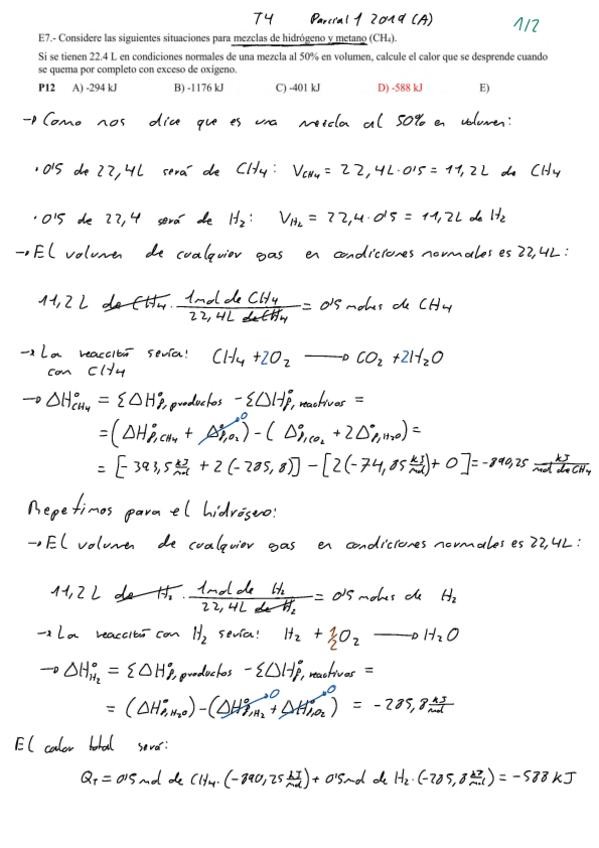 T4 Parcial 1 2019 (A) 1/2
E7.- Considere las siguientes situaciones para mezclas de hidrógeno y metano (CH₄).
Si se tienen 22.4 L en condiciones normales de una mezcla al 50% en volumen, calcule el calor que se desprende cuando
se quema por completo con exceso de oxígeno.
P12 A) -294 kJ B) -1176 kJ C) -401 kJ D) -588 kJ E)
→ Como nos dice que es una mezcla al 50% en volumen:
· 0'5 de 22,4L será de CH₄: V_CH₄ = 22,4L·0'5 = 11,2L de CH₄
· 0'5 de 22,4 será de H₂: V_H₂ = 22,4·0'5 = 11,2L de H₂
→ El volumen de cualquier gas en condiciones normales es 22,4L:
11,2 L de CH₄ · 1mol de CH₄ / 22,4L de CH₄ = 0'5 moles de CH₄
→ La reacción sería: CH₄ + 2O₂ → CO₂ + 2H₂O
con CH₄
→ ΔH°_CH₄ = ΣΔH°f, productos - ΣΔH°f, reactivos =
= (ΔH°f,CH₄ + Δ°f,O₂)⁰ - ( Δ°f,CO₂ + 2Δ°f,H₂O) =
= [-393,5 kJ/mol + 2(-285,8)] - [2(-74,85 kJ/mol) + 0] = -890,25 kJ/mol de CH₄
Repetimos para el hidrógeno:
→ El volumen de cualquier gas en condiciones normales es 22,4L:
11,2 L de H₂ · 1mol de H₂ / 22,4L de H₂ = 0'5 moles de H₂
→ La reacción con H₂ sería: H₂ + ½O₂ → H₂O
→ ΔH°_H₂ = ΣΔH°f, productos - ΣΔH°f, reactivos =
= (ΔH°f,H₂O) - (ΔH°f,H₂⁰ + ΔH°f,O₂⁰) = -285,8 kJ/mol
El calor total será:
Q_T = 0'5 mol de CH₄·(-890,25 kJ/mol) + 0'5 mol de H₂·(-285,8 kJ/mol) = -588 kJ